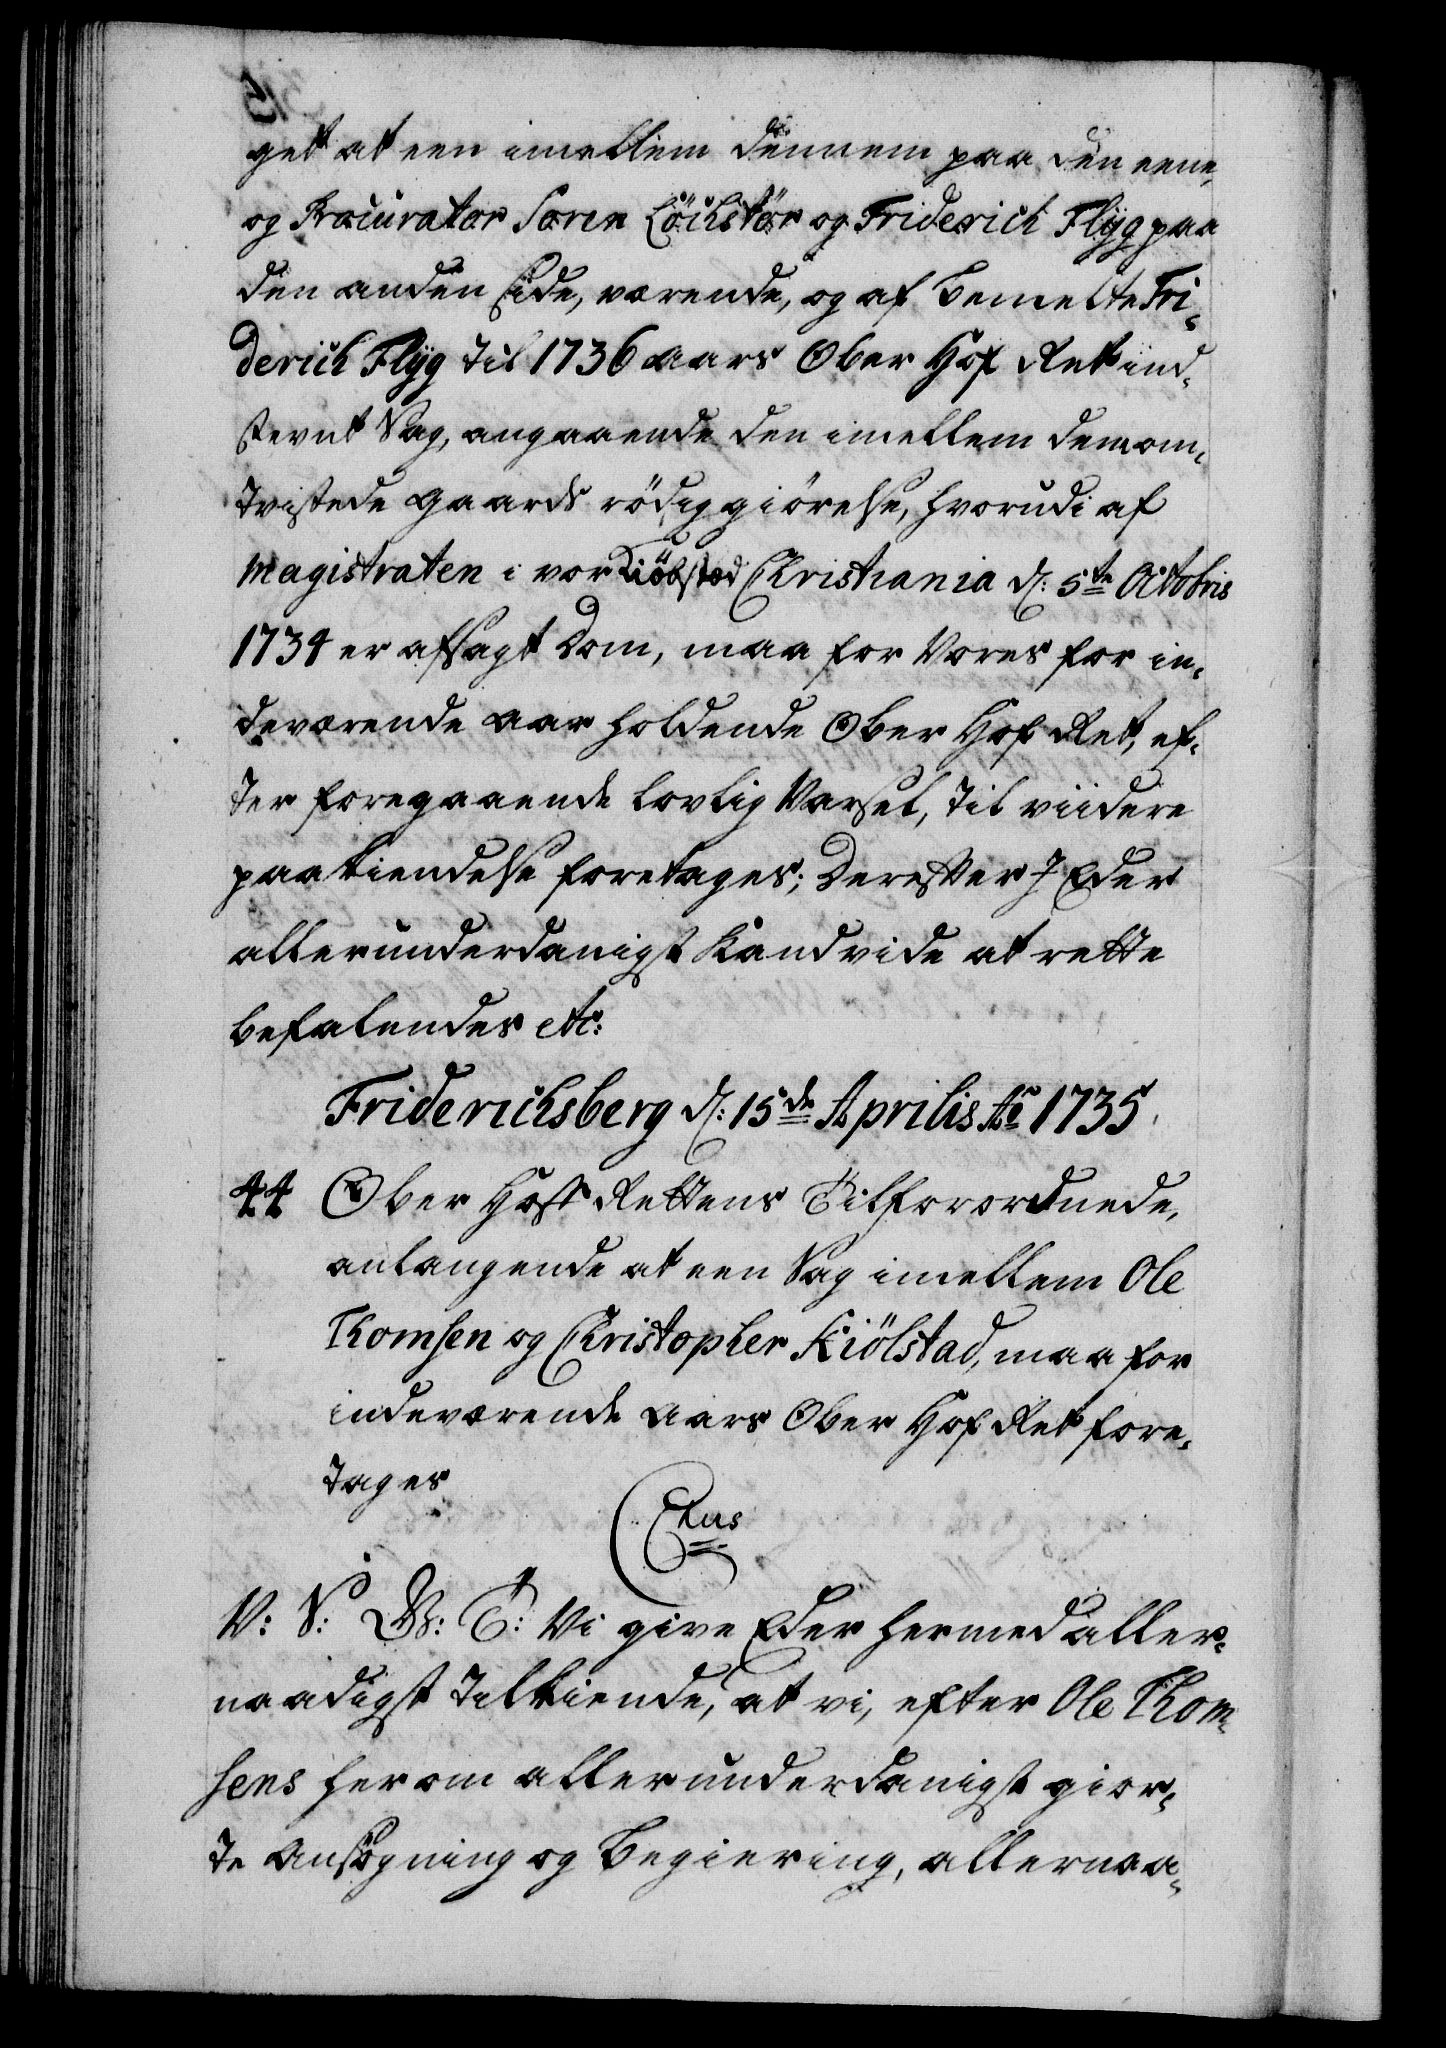 get at een imellem dennem paa den eene,
og Procurator Søren Löchstör og Friderich Flÿg paa
den anden Side, værende, og af bemelte Fri¸
derich Flÿg til 1736 aars Ober Hof Ret ind¸
stevnt Sag, angaaende den imellem dem om¸
tvistede Gaards rödiggiörelse, hvorudi af
Magistraten i vor Kiöbstæd Christiania d: 5te Octobris
1734 er afsagt Dom, maa for Vores for in¸
deværende aar holdende Ober Hof Ret, ef¸
ter foregaaende lovlig Varsel, til viidere
paakiendelse foretages; Derefter I Eder
allerunderdanigst kand vide at rette
befalendes etc:
Friderichsberg d: 15de Aprilis Ao 1735
44 Ober Hoff Rettens Tilforordnede,
anlangende at een Sag imellem Ole
Thomsen og Christopher Kiölstad, maa for
indeværende aars Ober Hof Ret fore¸
tages
Chus
V: S: G: T: Vi give Eder hermed aller¸
naadigst tilkiende, at vi, efter Ole Thom¸
sens herom allerunderdanigst gior¸
te Ansögning og Begiering, allernaa¸